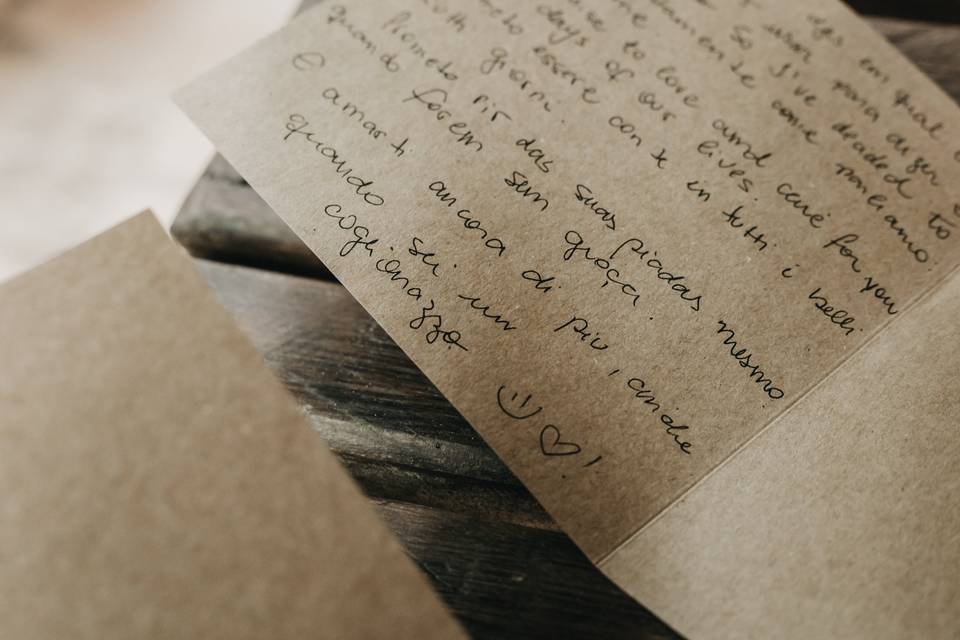 em qual
amor para dizer
So I've decided to
come
to love and care for you
days of our lives.
essere con te in tutti i belli
giorni.
Prometo rir das suas piadas mesmo
quando forem sem graça.
E amarti ancora di più, anche
quando sei un
coglionazzo
!